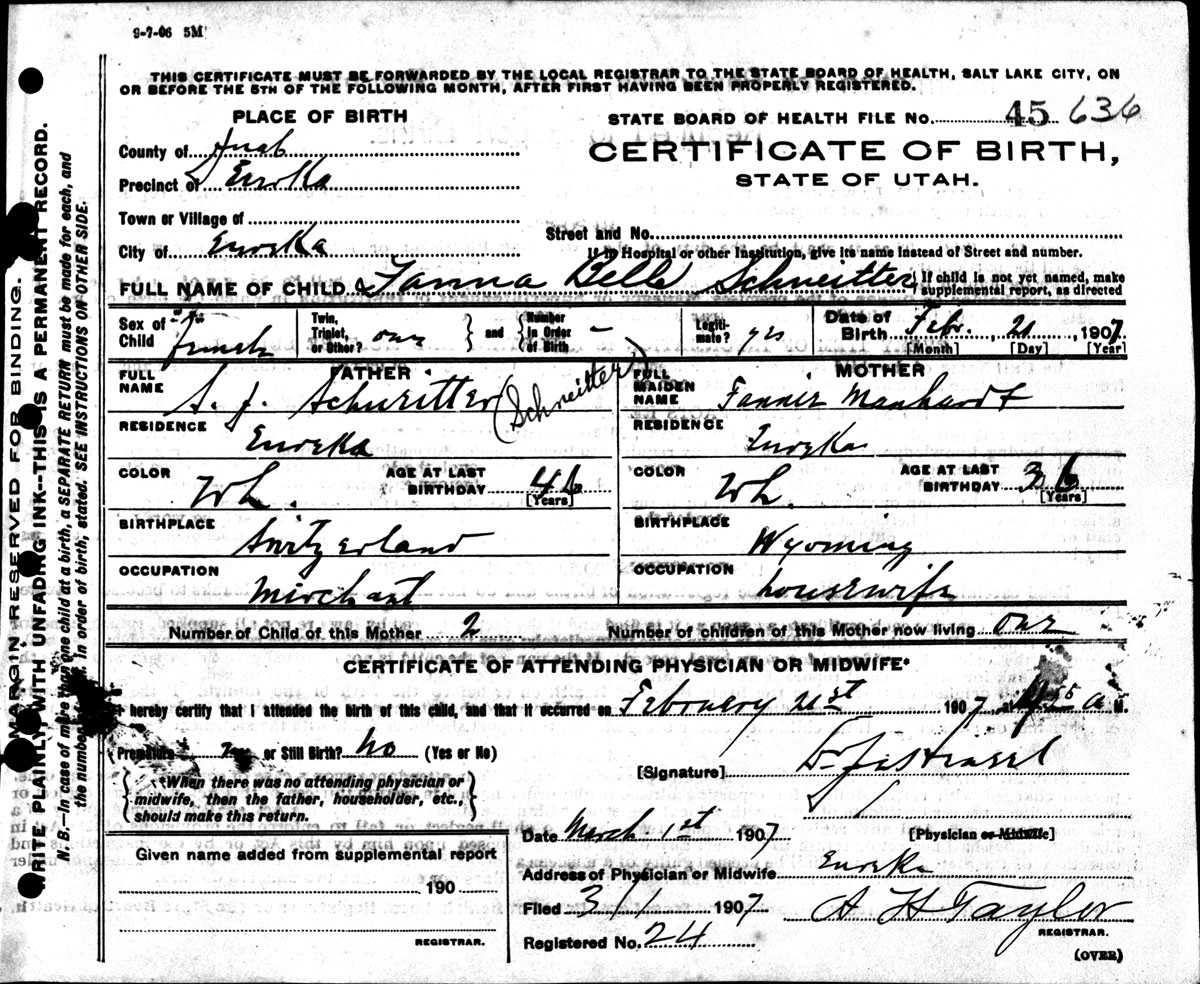 9-7-06 5M
THIS CERTIFICATE MUST BE FORWARDED BY THE LOCAL REGISTRAR TO THE STATE BOARD OF HEALTH, SALT LAKE CITY, ON
OR BEFORE THE 5TH OF THE FOLLOWING MONTH, AFTER FIRST HAVING BEEN PROPERLY REGISTERED.
PLACE OF BIRTH
STATE BOARD OF HEALTH FILE No. 45 636
County of Juab
CERTIFICATE OF BIRTH,
Precinct of Eureka
STATE OF UTAH.
Town or Village of
Street and No.
City of Eureka
If in Hospital or other Institution, give its name instead of Street and number.
FULL NAME OF CHILD Fanna Belle Schneitter { If child is not yet named, make supplemental report, as directed
Sex of Child Female
Twin, Triplet, or Other? one } and { Number in Order of Birth –
Legitimate? yes
Date of Birth Febr. 21, 1907
[Month] [Day] [Year]
FATHER
FULL NAME S. J. Schneitter (Schneitter)
MOTHER
FULL MAIDEN NAME Fannie Manhardt
RESIDENCE Eureka
RESIDENCE Eureka
COLOR Wh. AGE AT LAST BIRTHDAY 46 [Years]
COLOR Wh. AGE AT LAST BIRTHDAY 36 [Years]
BIRTHPLACE Switzerland
BIRTHPLACE Wyoming
OCCUPATION Merchant
OCCUPATION housewife
Number of Child of this Mother 2 Number of children of this Mother now living one
CERTIFICATE OF ATTENDING PHYSICIAN OR MIDWIFE*
I hereby certify that I attended the birth of this child, and that it occurred on February 21st 1907, at 55 a M.
(Premature no or Still Birth? No (Yes or No)
{ When there was no attending physician or midwife, then the father, householder, etc., should make this return. }
[Signature] Dr
[Physician or Midwife]
Date March 1st 1907
Given name added from supplemental report
190
REGISTRAR.
Address of Physician or Midwife Eureka
Filed 3/1 1907 A H Taylor
REGISTRAR.
Registered No. 24
(OVER)
MARGIN RESERVED FOR BINDING.
WRITE PLAINLY, WITH UNFADING INK--THIS IS A PERMANENT RECORD.
N. B.—In case of more than one child at a birth, a SEPARATE RETURN must be made for each, and
the number of each, in order of birth, stated. SEE INSTRUCTIONS ON OTHER SIDE.